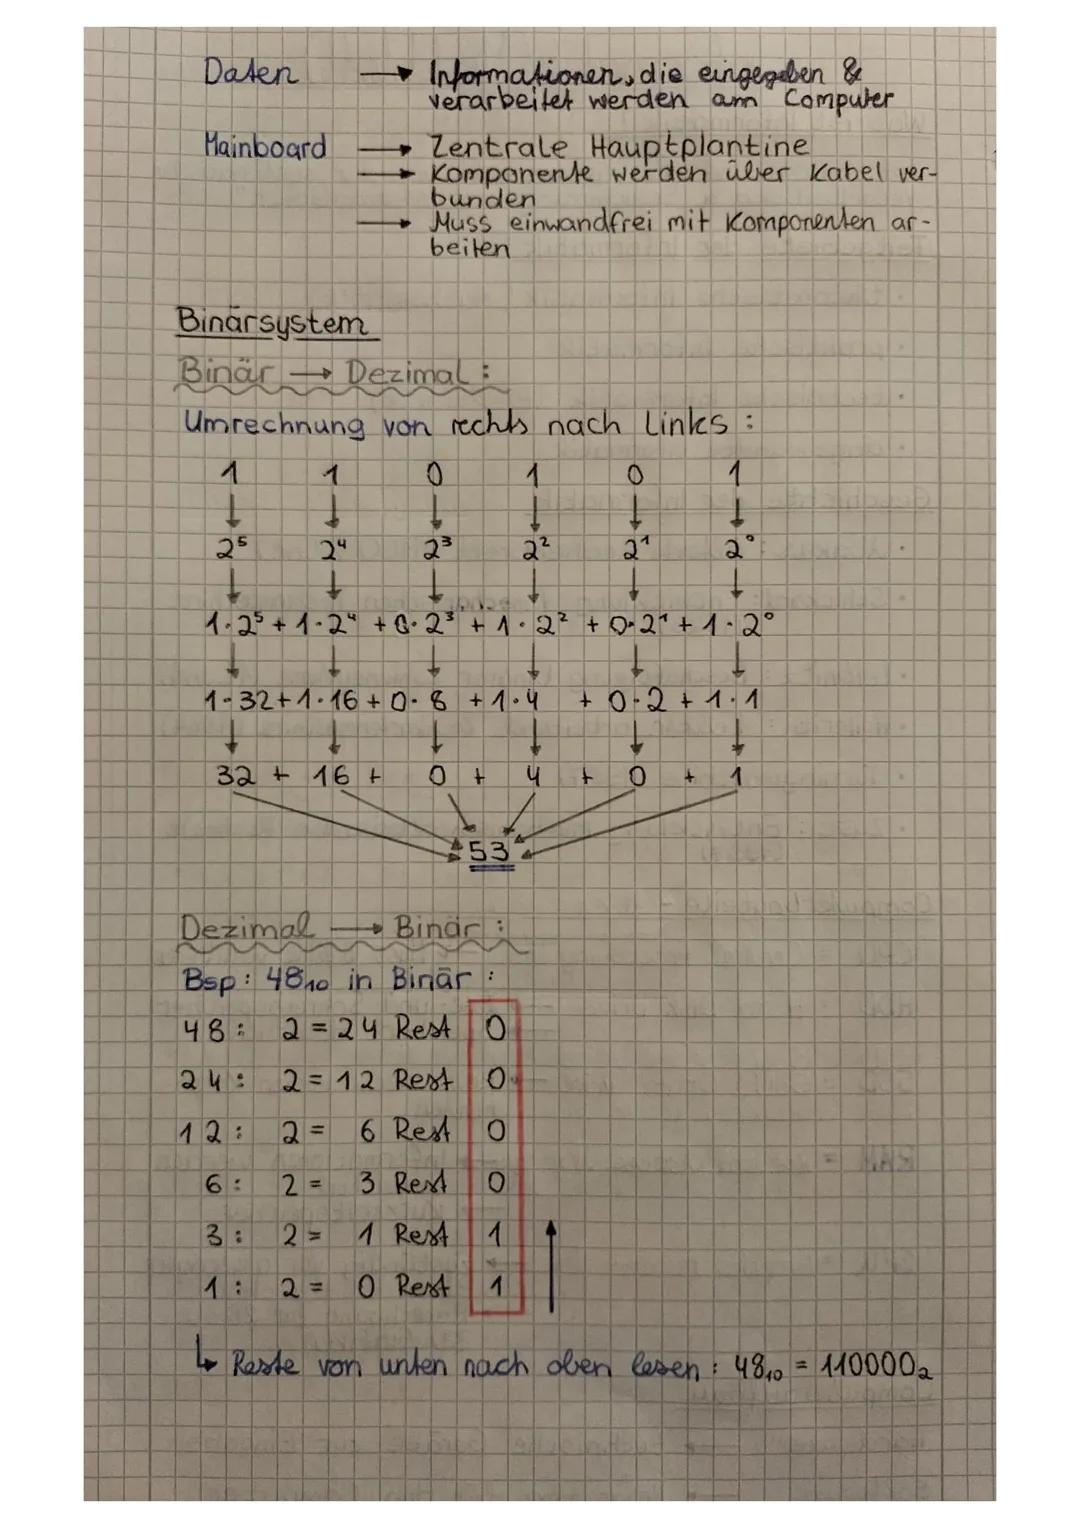 Daten → Informationen, die eingegeben &
verarbeitet werden am Computer
Mainboard → Zentrale Hauptplantine
→ Komponente werden über Kabel ver-
bunden
→ Muss einwandfrei mit Komponenten ar-
beiten
Binärsystem
Binär → Dezimal :
Umrechnung von rechts nach links :
1 1 0 1 0 1
↓ ↓ ↓ ↓ ↓ ↓
2⁵ 2⁴ 2³ 2² 2¹ 2⁰
↓ ↓ ↓ ↓ ↓ ↓
1·2⁵ + 1·2⁴ + 0·2³ + 1·2² + 0·2¹ + 1·2⁰
↓ ↓ ↓ ↓ ↓ ↓
1·32 + 1·16 + 0·8 + 1·4 + 0·2 + 1·1
↓ ↓ ↓ ↓ ↓ ↓
32 + 16 + 0 + 4 + 0 + 1
53
Dezimal → Binär :
Bsp : 48₁₀ in Binär :
48 : 2 = 24 Rest 0
24 : 2 = 12 Rest 0
12 : 2 = 6 Rest 0
6 : 2 = 3 Rest 0
3 : 2 = 1 Rest 1
1 : 2 = 0 Rest 1
↳ Reste von unten nach oben lesen : 48₁₀ = 110000₂